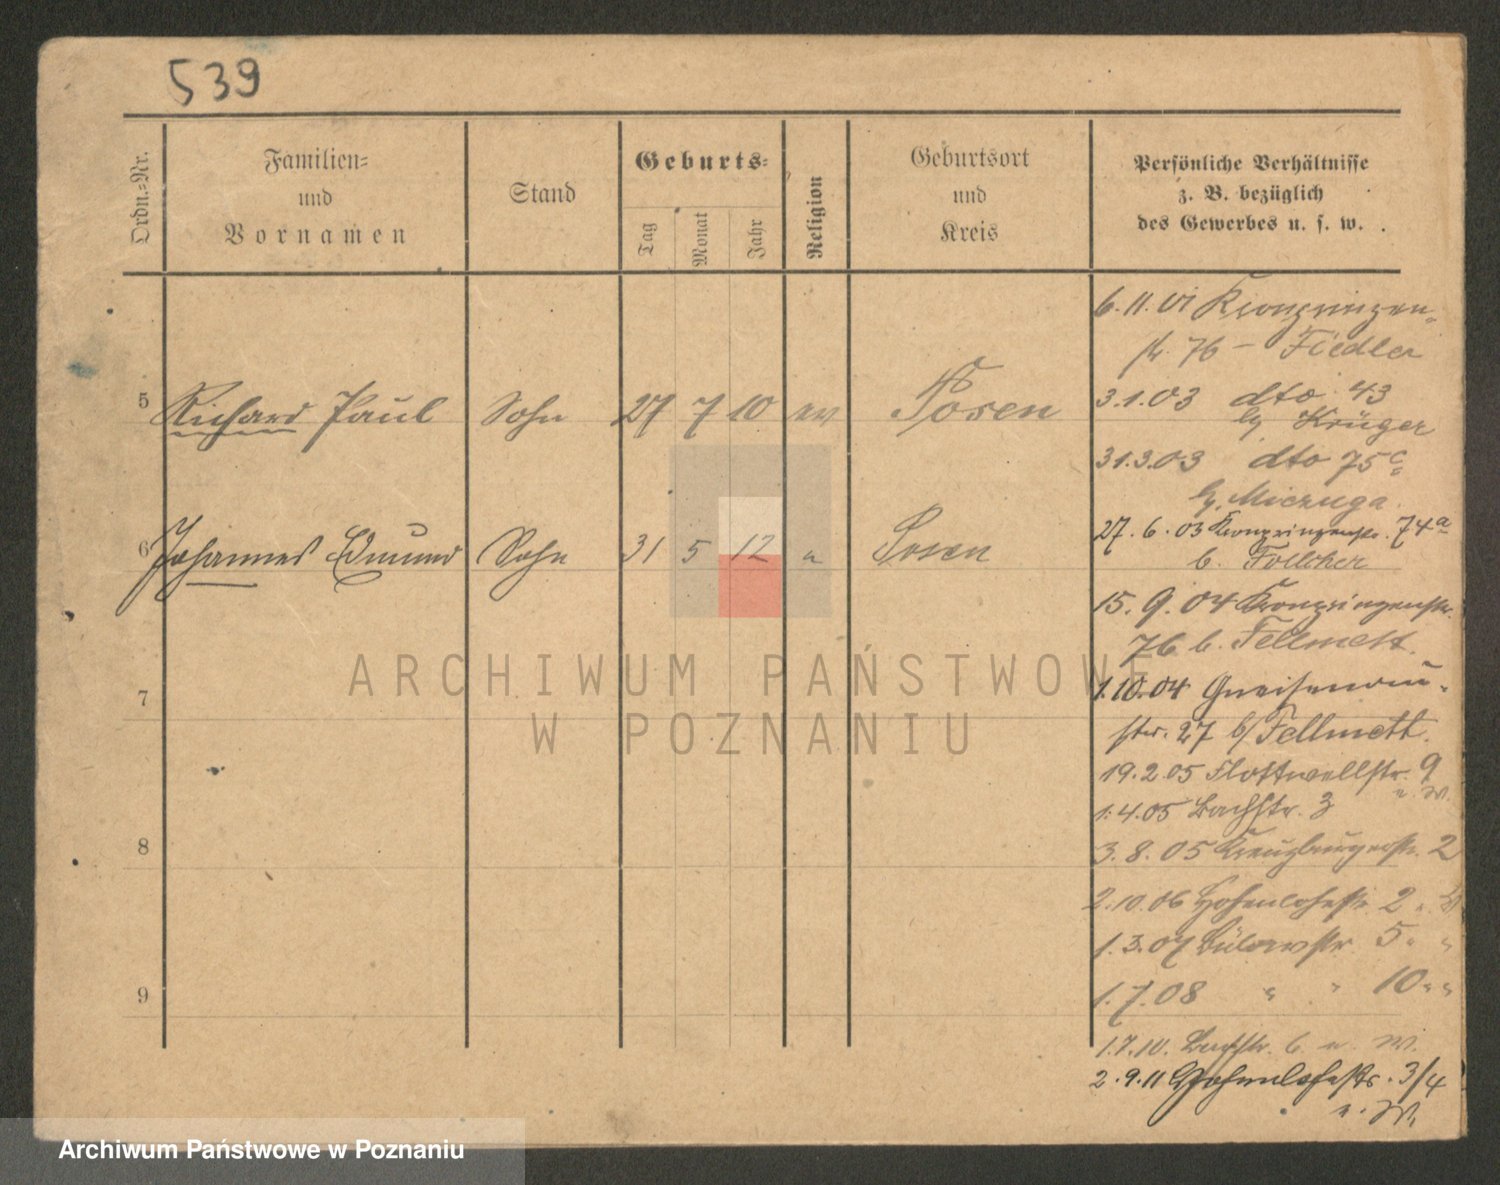 539
Ordn.-Nr.
Familien-
und
Vornamen
Stand
Geburts-
Tag
Monat
Jahr
Religion
Geburtsort
und
Kreis
Persönliche Verhältnisse
z. B. bezüglich
des Gewerbes u. s. w.
6.11.01 Kronprinzen-
str. 76 - Fiedler
5 Richard Paul Sohn 27 7 10 ev Posen
3.1.03 dto 43
bei Krüger
31.3.03 dto 75c
b. Miczuga
6 Johannes Edmund Sohn 31 5 12 " Posen
27.6.03 Kronprinzenstr. 74a
b.
15.9.04 Kronprinzenstr.
76 b. Fellmett.
7
1.10.04 Gneisenau-
str. 27 b/ Fellmett.
19.2.05 Flottwellstr. 9
e. W.
1.4.05 Bachstr. 3
8
3.8.05 Kreuzburgerstr. 2
2.10.06 Hohenlohestr 2 " W
1.3.07 Bülowstr 5 " "
9
1.7.08 " " 10 " "
1.7.10. Bachstr. 6 e. W.
2.9.11 Hohenlohestr. 3/4
e. W.
ARCHIWUM PAŃSTWOWE
W POZNANIU
Archiwum Państwowe w Poznaniu